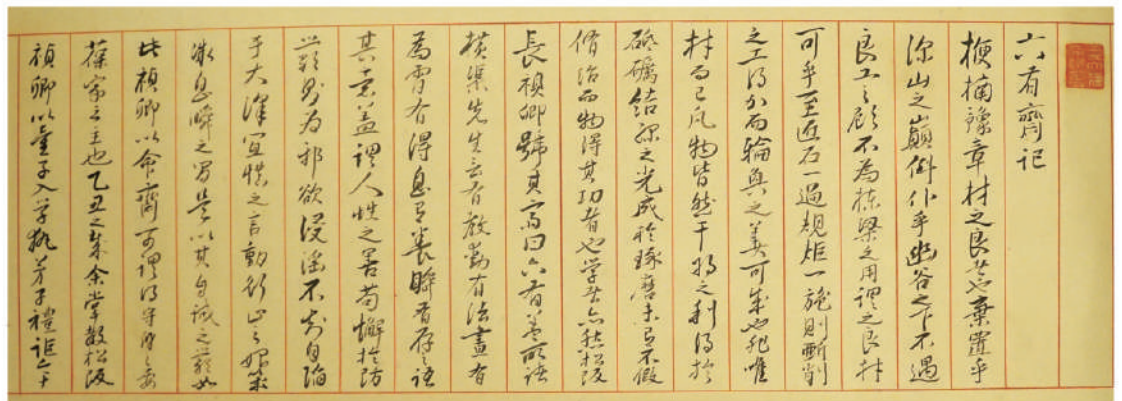 六有齊記
楩楠豫章材之良者也棄置乎
深山之巔倒仆乎幽谷之下不遇
良工之顧不為棟梁之用謂之良材
可乎至匠石一過規矩一施則斵削
之工得加而輪奐之美可成也非唯
材而已凡物皆然干將之利得於
砥礪結綠之光成於琢磨未有不假
脩治而物得其功者也学者亦然松阪
長禎卿號其齋曰六有蓋取諸
橫渠先生言有教動有法晝有
為宵有得息有養瞬有存之語
其意蓋謂人性之善苟懈於防
則為邪欲浸淫不知自陷
于大澤宜慎之言動行止之
息瞬之間是以其自誠之嚴如
此禎卿以命齊可謂得守身之要
葆家之主也乙丑之歲余嘗教松阪
禎卿以童子入学執弟子禮距今十